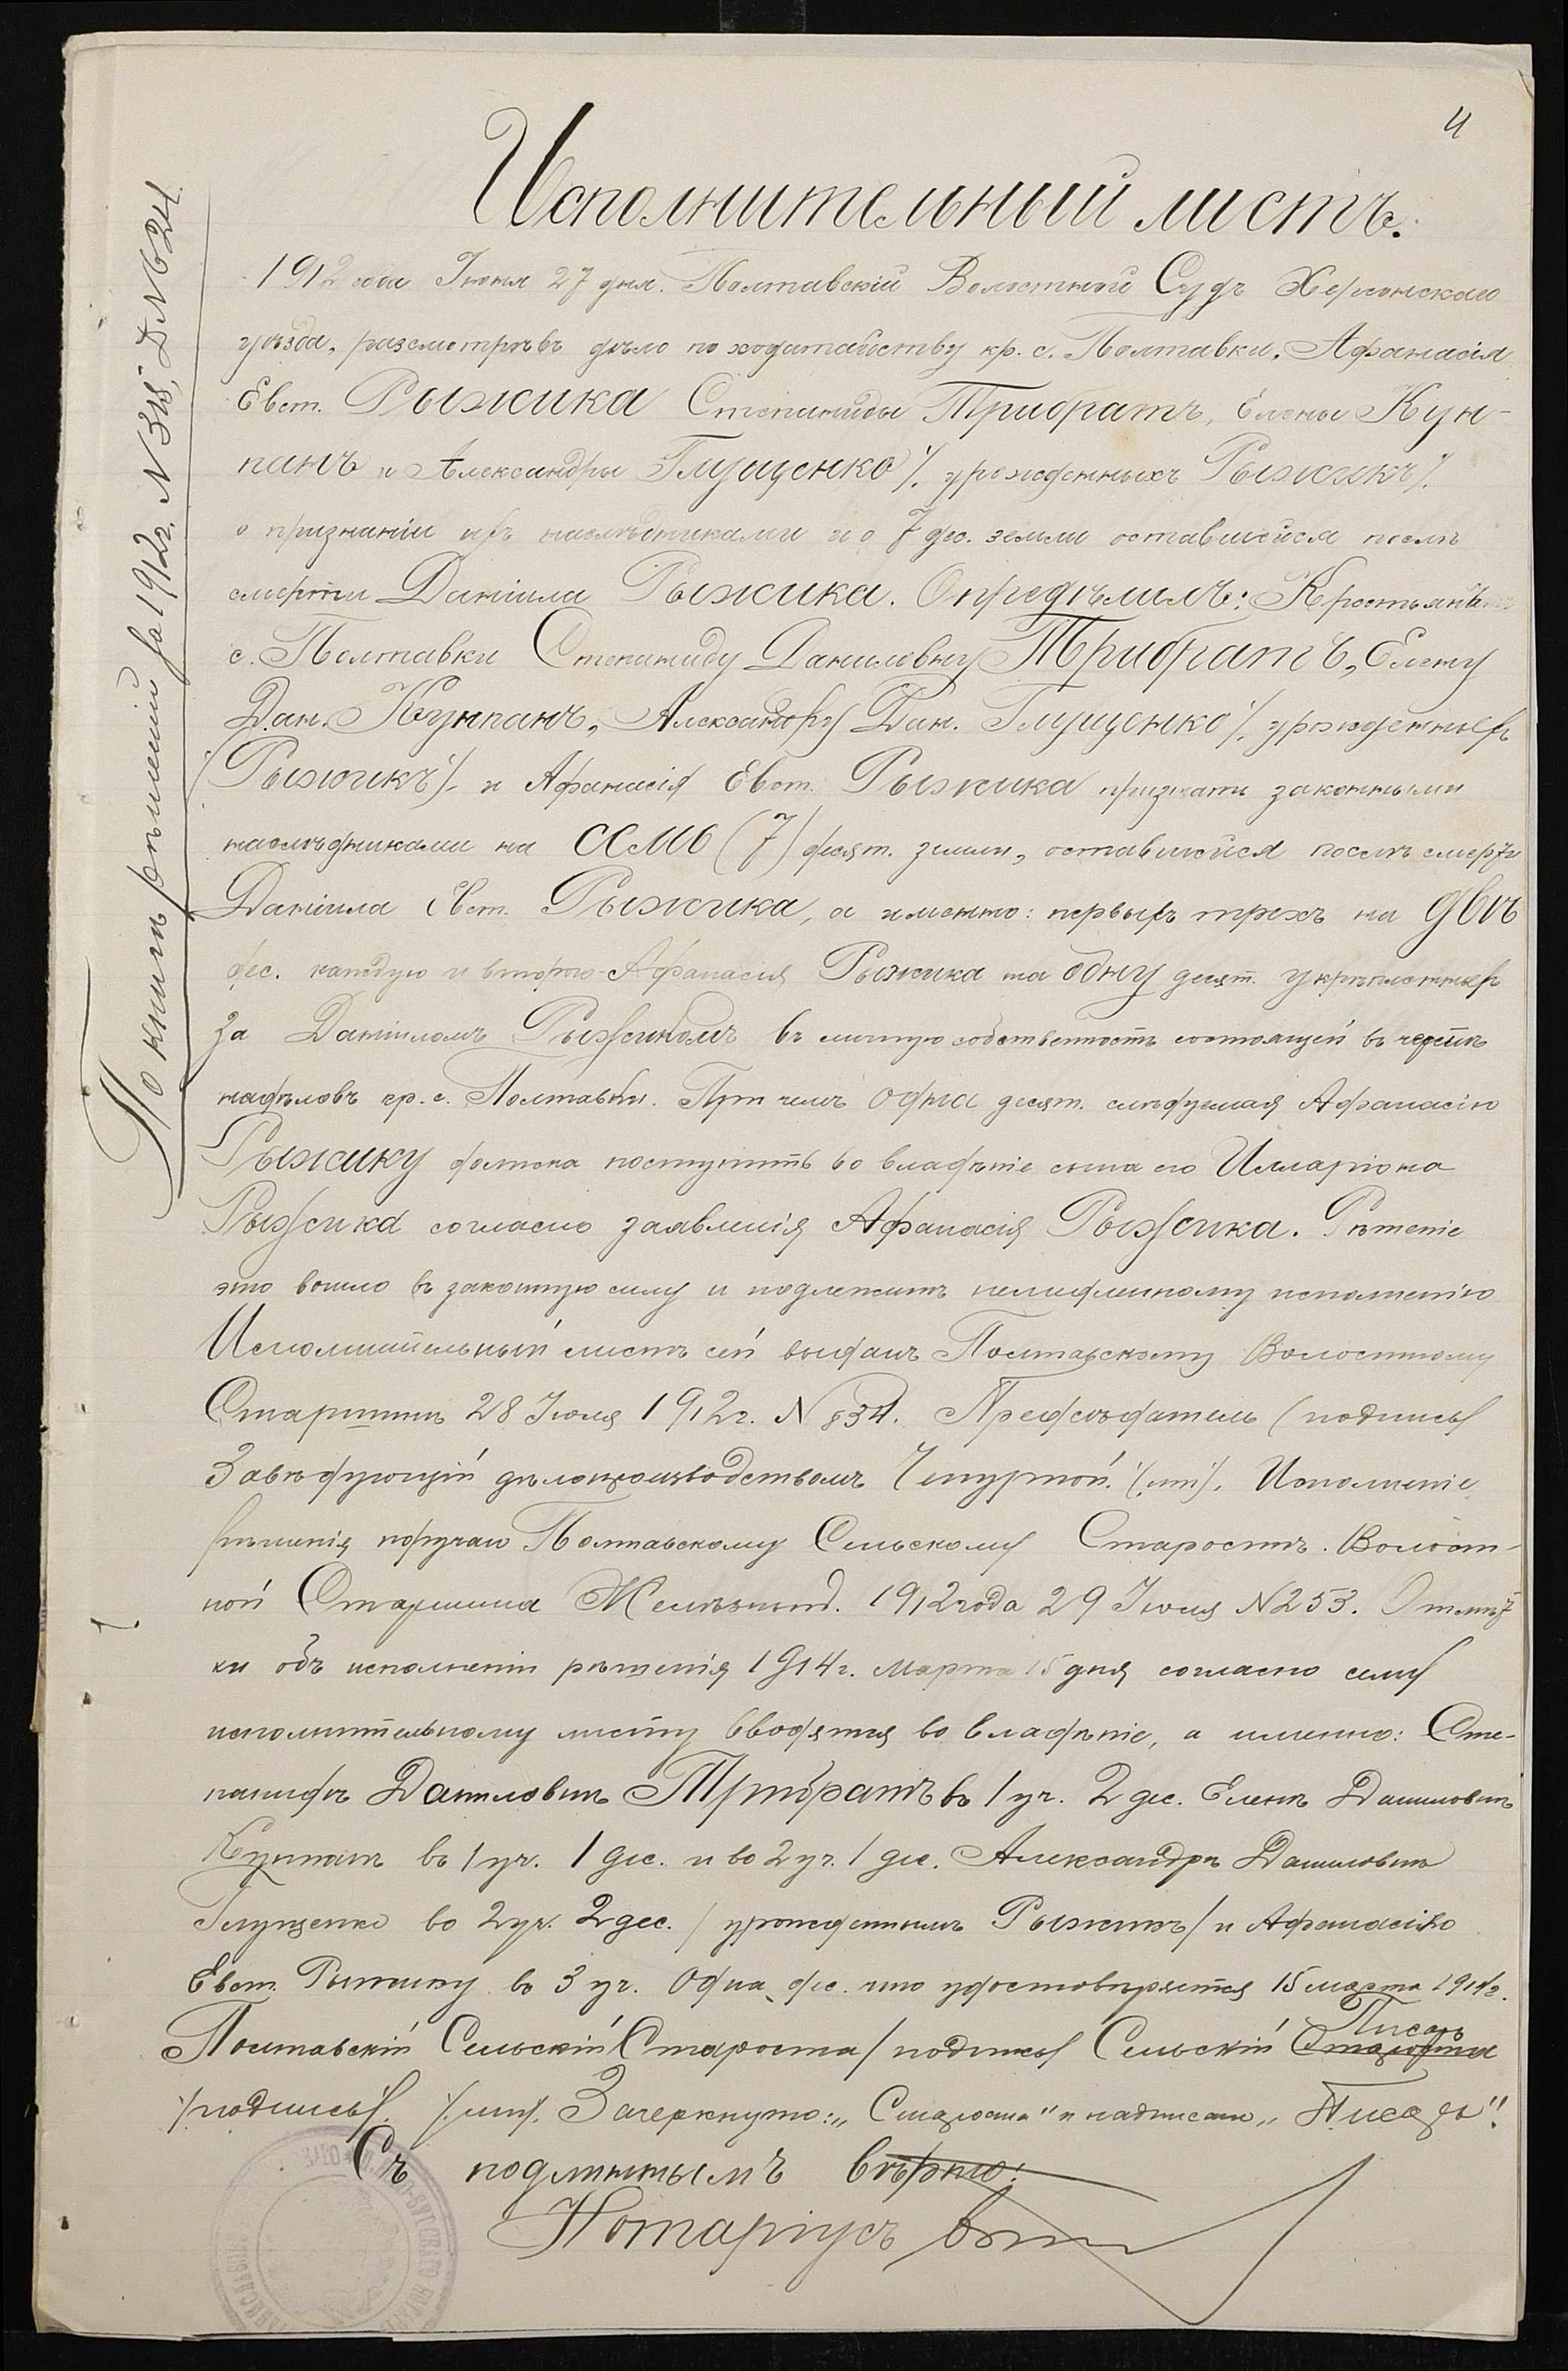 4
Исполнительный листъ.
1912 года Іюня 27 дня. Полтавскій Волостной Судъ Херсонскаго
уѣзда, разсмотрѣвъ дѣло по ходатайству кр. с. Полтавки, Афанасія
Евст. Рыжика Степаниды Трибратъ, Елены Кун-
панъ и Александры Глущенко /. урожденныхъ Рыжикъ /.
о признаніи ихъ наслѣдниками и о 7 дес. земли оставшейся послѣ
смерти Даніила Рыжика. Опредѣлилъ: Крестьянъ
с. Полтавки Степаниду Даниловну Трибратъ, Елену
Дан. Кунпанъ, Александру Дан. Глущенко /. урожденныхъ
Рыжикъ /. и Афанасія Евст. Рыжика признать законными
наслѣдниками на семь (7) десят. земли, оставшейся послѣ смерти
Даніила Евст. Рыжика, а именно: первыхъ трехъ на двѣ
дес. каждую и второго Афанасія Рыжика на одну десят. укрѣпленныхъ
за Даніиломъ Рыжикомъ въ личную собственность состоящей въ чертѣ
надѣловъ кр. с. Полтавки. При чемъ одна десят. слѣдуемая Афанасію
Рыжику должна поступить во владѣніе сына его Илларіона
Рыжика согласно заявленія Афанасія Рыжика. Рѣшеніе
это вошло въ законную силу и подлежитъ немедленному исполненію
Исполнительный листъ сей выданъ Полтавскому Волостному
Старшинѣ 28 Іюля 1912 г. N 834. Предсѣдатель (подпись)
Завѣдующій дѣлопроизводствомъ Чепурной. Исполненіе
рѣшенія поручаю Полтавскому Сельскому Старостѣ. Волост-
ной Старшина 1912 года 29 Іюля N 253. Отмѣт
ки объ исполненіи рѣшенія 1914 г. Марта 15 дня согласно сему
исполнительному листу вводятся во владѣніе, а именно: Сте-
панидѣ Даниловнѣ Трибратъ въ 1 уч. 2 дес. Еленѣ Даниловнѣ
Кунпанъ въ 1 уч. 1 дес. и во 2 уч. 1 дес. Александрѣ Даниловнѣ
Глущенко во 2 уч. 2 дес. / урожденнымъ Рыжикъ / и Афанасію
Евст. Рыжику въ 3 уч. Одна дес. что удостовѣряется 15 марта 1914 г.
Писарь
Полтавскій Сельскій Староста / подпись / Сельскій Староста
/ подпись /. Зачеркнуто: „Староста" и надписано „Писарь".
Съ подлиннымъ вѣрно:
Нотаріусъ
По книгѣ рѣшеній за 1912 г. N 315, Д. N 624